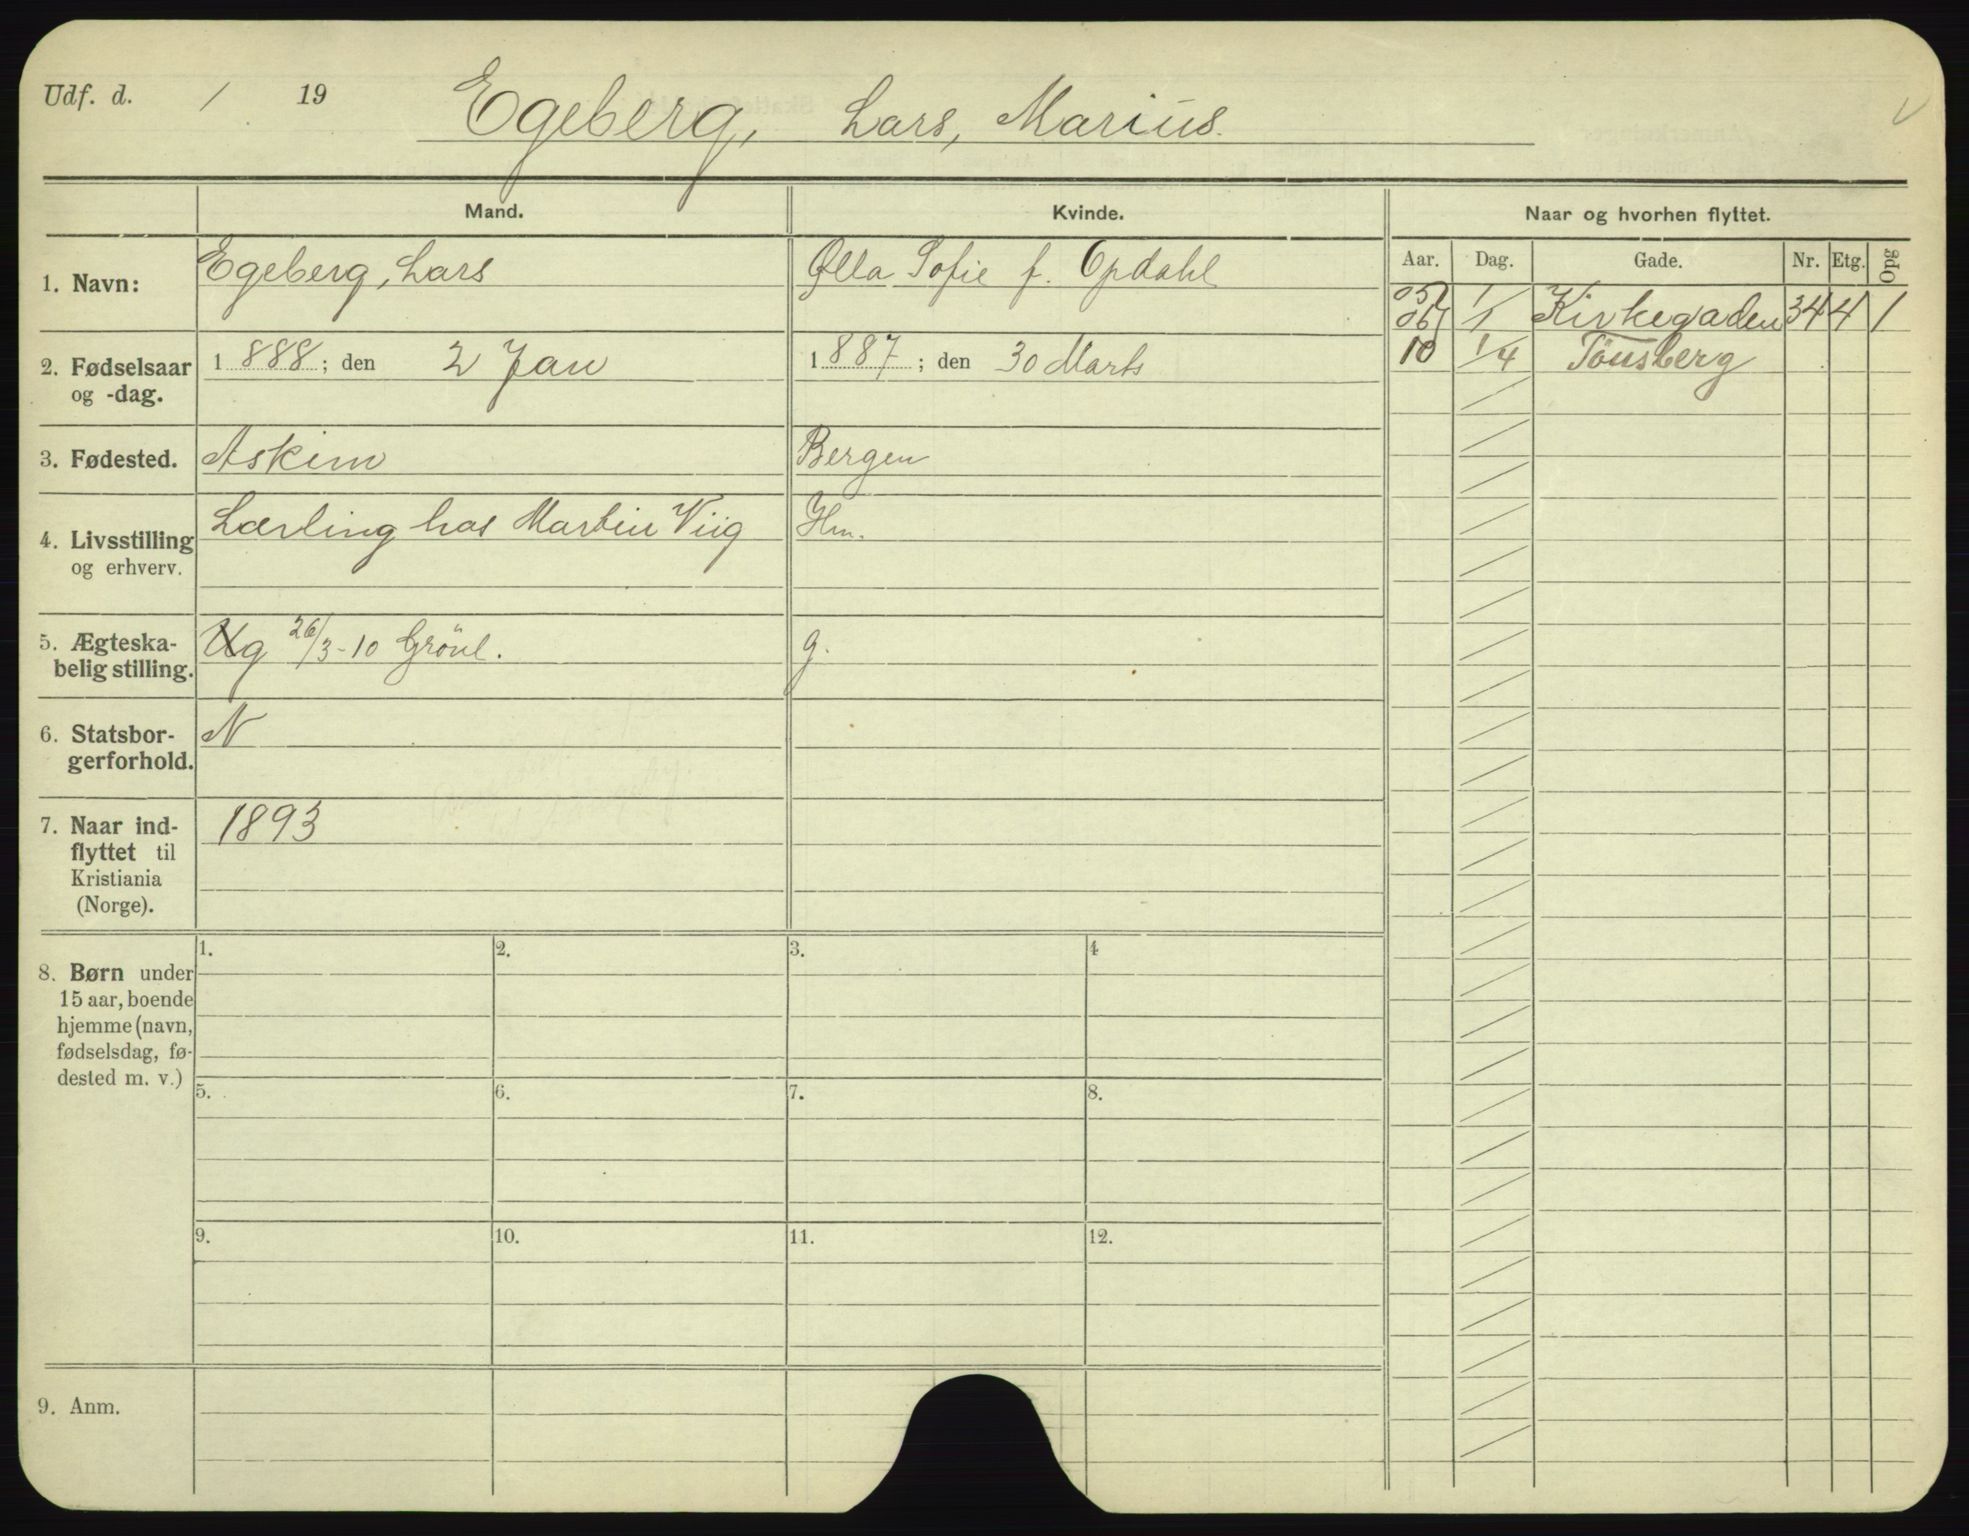 Udf. d. / 19 Egeberg, Lars, Marius.
Mand. Kvinde. Naar og hvorhen flyttet.
Aar. Dag. Gade. Nr. Etg. Opg
1. Navn: Egeberg, Lars Olla Sofie f. Opdahl
05
06 1/1 Kirkegaden 34 4 1
10 1/4 Tönsberg
2. Fødselsaar 1888; den 2 Jan 1887; den 30 Marts
og -dag.
3. Fødested. Askim Bergen
4. Livsstilling Lærling hos Martin Viig Hm.
og erhverv.
5. Ægteska- Ug 26/3-10 Grönl. g.
belig stilling.
6. Statsbor- N
gerforhold.
7. Naar ind- 1893
flyttet til
Kristiania
(Norge).
8. Børn under
15 aar, boende
hjemme (navn,
fødselsdag, fø-
dested m. v.)
1. 2. 3. 4
5. 6. 7. 8.
9. 10. 11. 12.
9. Anm.